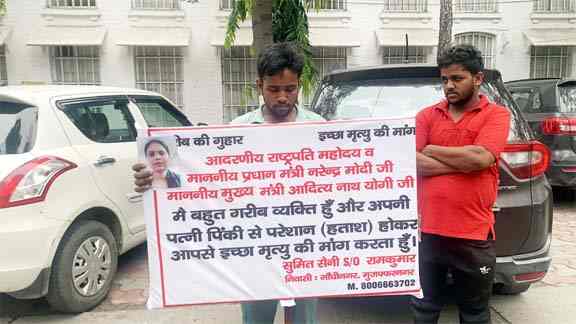 गरीब की गुहार इच्छा मृत्यु की मांग
आदरणीय राष्ट्रपति महोदय व
माननीय प्रधान मंत्री नरेन्द्र मोदी जी
माननीय मुख्य मंत्री आदित्य नाथ योगी जी
मै बहुत गरीब व्यक्ति हुँ और अपनी
पत्नी पिंकी से परेशान (हताश) होकर
आपसे इच्छा मृत्यु की मांग करता हुँ।
सुमित सैनी S/O रामकुमार
निवासी : गाँधीनगर, मुजफ्फरनगर
M. 8006663702